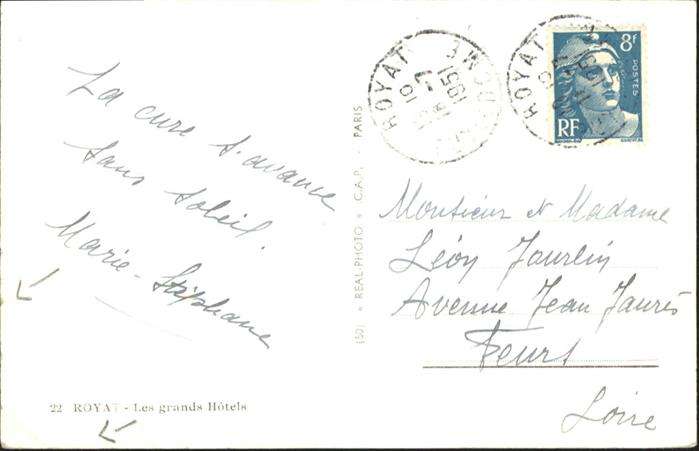 La cure s'avance
sans soleil.
Marie-Stéphane
22 ROYAT - Les grands Hôtels
(50) REAL-PHOTO C.A.P. - PARIS
ROYAT
1951
ROYAT
1951
8f
POSTES
RF
Monsieur et Madame
Léon Jaurlin
Avenue Jean Jaurès
Feurs
Loire